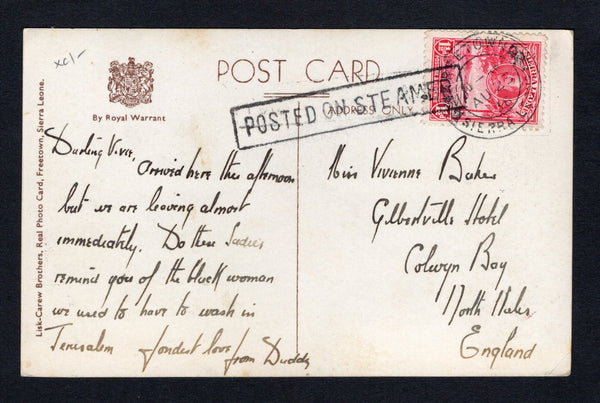 xc1-
POST CARD
By Royal Warrant
ADDRESS ONLY
POSTED ON STEAMER
Lisk-Carew Brothers, Real Photo Card, Freetown, Sierra Leone.
Darling Vivie,
Arrived here this afternoon
but we are leaving almost
immediately. Do these Ladies
remind you of the black woman
we used to have to wash in
Jerusalem fondest love from Daddy
Miss Vivienne Baker
Gilbertville Hotel
Colwyn Bay
North Wales
England